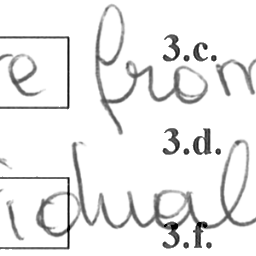 re from 3.c.
3.d.
idual
3.f.